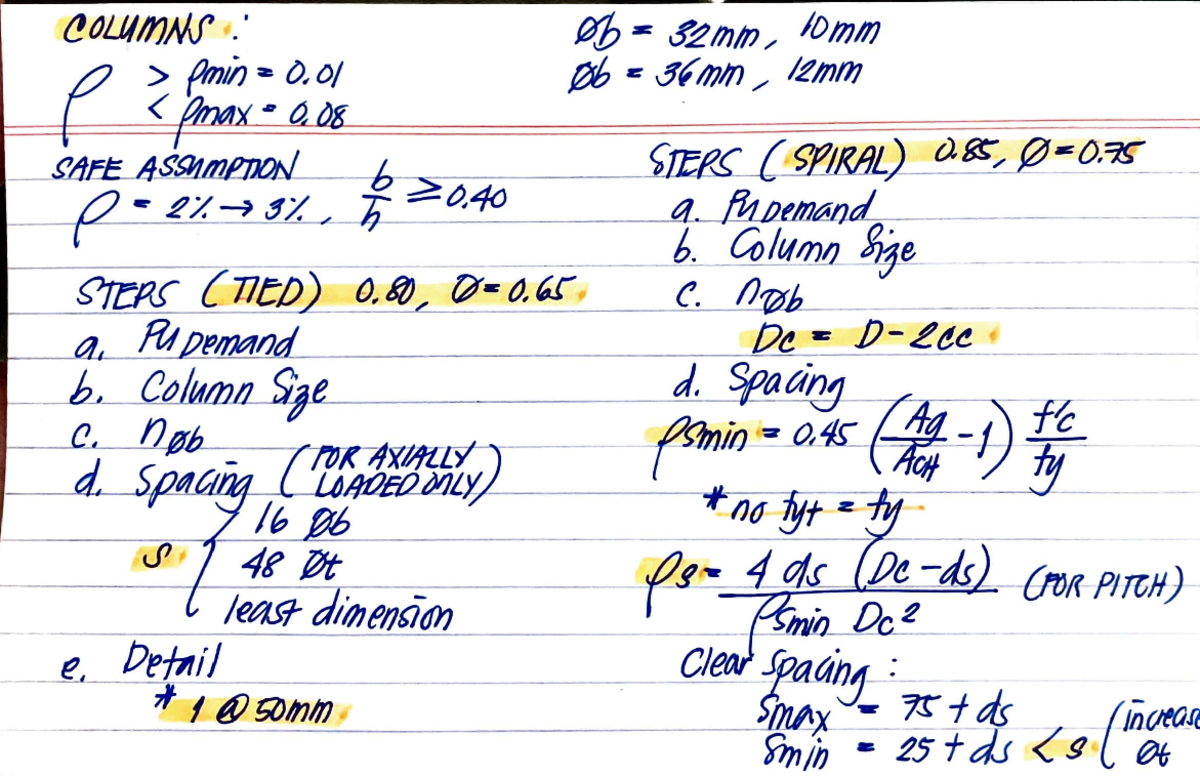 COLUMNS :
ρ > ρmin = 0.01
< ρmax = 0.08
SAFE ASSUMPTION
ρ = 2% → 3%, b/h ≥ 0.40
STEPS (TIED) 0.80, Ø = 0.65
a. Pu Demand
b. Column Size
c. nøb
d. Spacing (FOR AXIALLY LOADED ONLY)
s { 16 Øb
48 Øt
least dimension
e. Detail
* 1 @ 50mm
Øb = 32mm, 10mm
Øb = 36mm, 12mm
STEPS (SPIRAL) 0.85, Ø = 0.75
a. Pu Demand
b. Column Size
c. nøb
Dc = D - 2cc
d. Spacing
ρsmin = 0.45 (Ag/ACH - 1) f'c/fy
* no fyt = fy
ρs = 4 ds (Dc - ds) / ρsmin Dc² (FOR PITCH)
Clear Spacing :
Smax = 75 + ds
Smin = 25 + ds < s (increase Øt